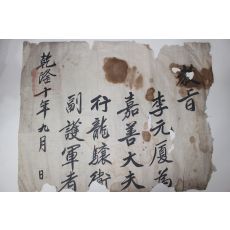 敎旨
李元厦爲
嘉善大夫
行龍驤衛
副護軍者
乾隆十年九月 日